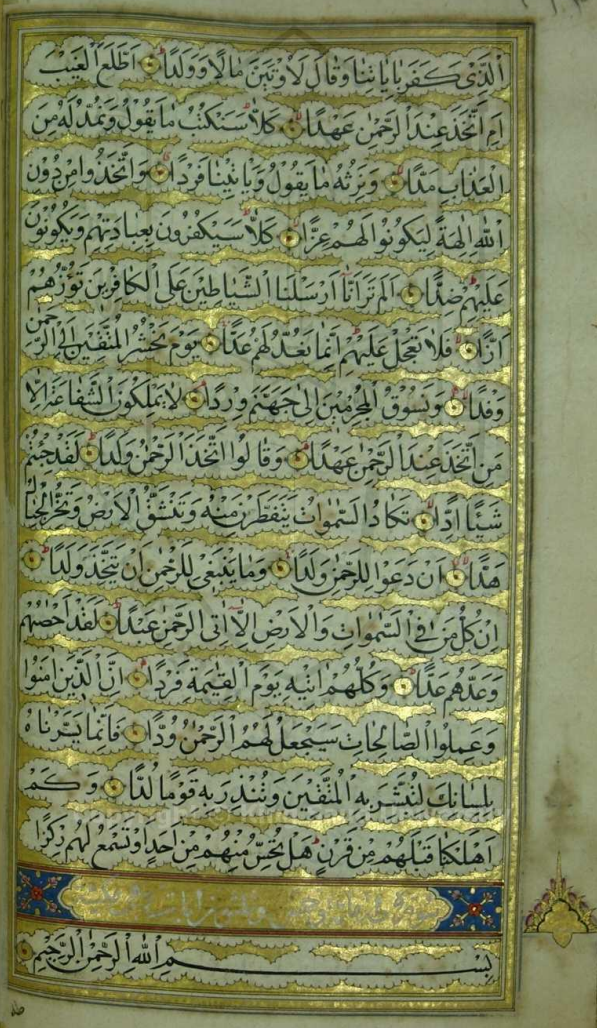 الَّذِي كَفَرَ بِاٰيَاتِنَا وَقَالَ لَاُوتَيَنَّ مَالًا وَوَلَدًا اَطَّلَعَ الْغَيْبَ
اَمِ اتَّخَذَ عِنْدَ الرَّحْمٰنِ عَهْدًا كَلَّا سَنَكْتُبُ مَا يَقُولُ وَنَمُدُّ لَهُ مِنَ
الْعَذَابِ مَدًّا وَنَرِثُهُ مَا يَقُولُ وَيَاْتِينَا فَرْدًا وَاتَّخَذُوا مِنْ دُونِ
اللّٰهِ اٰلِهَةً لِيَكُونُوا لَهُمْ عِزًّا كَلَّا سَيَكْفُرُونَ بِعِبَادَتِهِمْ وَيَكُونُونَ
عَلَيْهِمْ ضِدًّا اَلَمْ تَرَ اَنَّا اَرْسَلْنَا الشَّيَاطِينَ عَلَى الْكَافِرِينَ تَؤُزُّهُمْ
اَزًّا فَلَا تَعْجَلْ عَلَيْهِمْ اِنَّمَا نَعُدُّ لَهُمْ عَدًّا يَوْمَ نَحْشُرُ الْمُتَّقِينَ اِلَى الرَّحْمٰنِ
وَفْدًا وَنَسُوقُ الْمُجْرِمِينَ اِلٰى جَهَنَّمَ وِرْدًا لَا يَمْلِكُونَ الشَّفَاعَةَ اِلَّا
مَنِ اتَّخَذَ عِنْدَ الرَّحْمٰنِ عَهْدًا وَقَالُوا اتَّخَذَ الرَّحْمٰنُ وَلَدًا لَقَدْ جِئْتُمْ
شَيْئًا اِدًّا تَكَادُ السَّمٰوَاتُ يَتَفَطَّرْنَ مِنْهُ وَتَنْشَقُّ الْاَرْضُ وَتَخِرُّ الْجِبَالُ
هَدًّا اَنْ دَعَوْا لِلرَّحْمٰنِ وَلَدًا وَمَا يَنْبَغِي لِلرَّحْمٰنِ اَنْ يَتَّخِذَ وَلَدًا
اِنْ كُلُّ مَنْ فِي السَّمٰوَاتِ وَالْاَرْضِ اِلَّا اٰتِي الرَّحْمٰنِ عَبْدًا لَقَدْ اَحْصٰيهُمْ
وَعَدَّهُمْ عَدًّا وَكُلُّهُمْ اٰتِيهِ يَوْمَ الْقِيٰمَةِ فَرْدًا اِنَّ الَّذِينَ اٰمَنُوا
وَعَمِلُوا الصَّالِحَاتِ سَيَجْعَلُ لَهُمُ الرَّحْمٰنُ وُدًّا فَاِنَّمَا يَسَّرْنَاهُ
بِلِسَانِكَ لِتُبَشِّرَ بِهِ الْمُتَّقِينَ وَتُنْذِرَ بِهِ قَوْمًا لُدًّا وَكَمْ
اَهْلَكْنَا قَبْلَهُمْ مِنْ قَرْنٍ هَلْ تُحِسُّ مِنْهُمْ مِنْ اَحَدٍ اَوْ تَسْمَعُ لَهُمْ رِكْزًا
بِسْمِ اللّٰهِ الرَّحْمٰنِ الرَّحِيمِ
طه